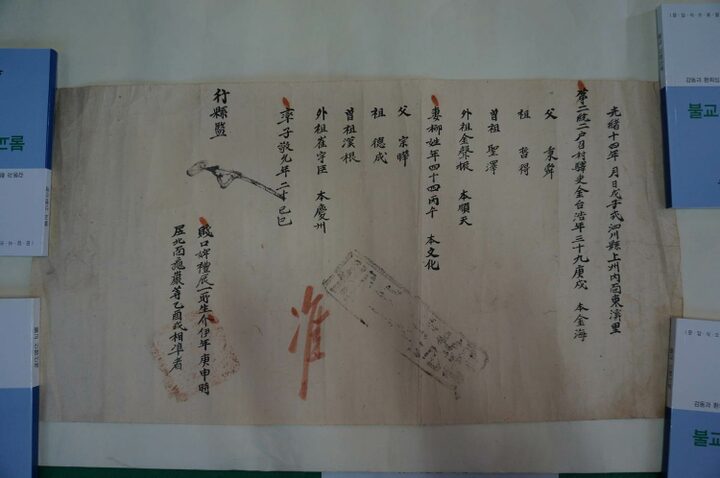 光緒十四年 月 日戊子式泗川縣上州內面東濱里
第二統二戶自村驛吏金台浩年三十九庚戌 本金海
父 秉舜
祖 哲得
曾祖 聖澤
外祖金聲振 本順天
妻柳姓年四十四丙午 本文化
父 宗曄
祖 德成
曾祖漢根
外祖崔守臣 本慶州
率子敬允年二十己巳
賤口婢禮辰一所生介伊年庚申時
居北面 巖等乙酉戎相準者
行縣監
准
불교
불교